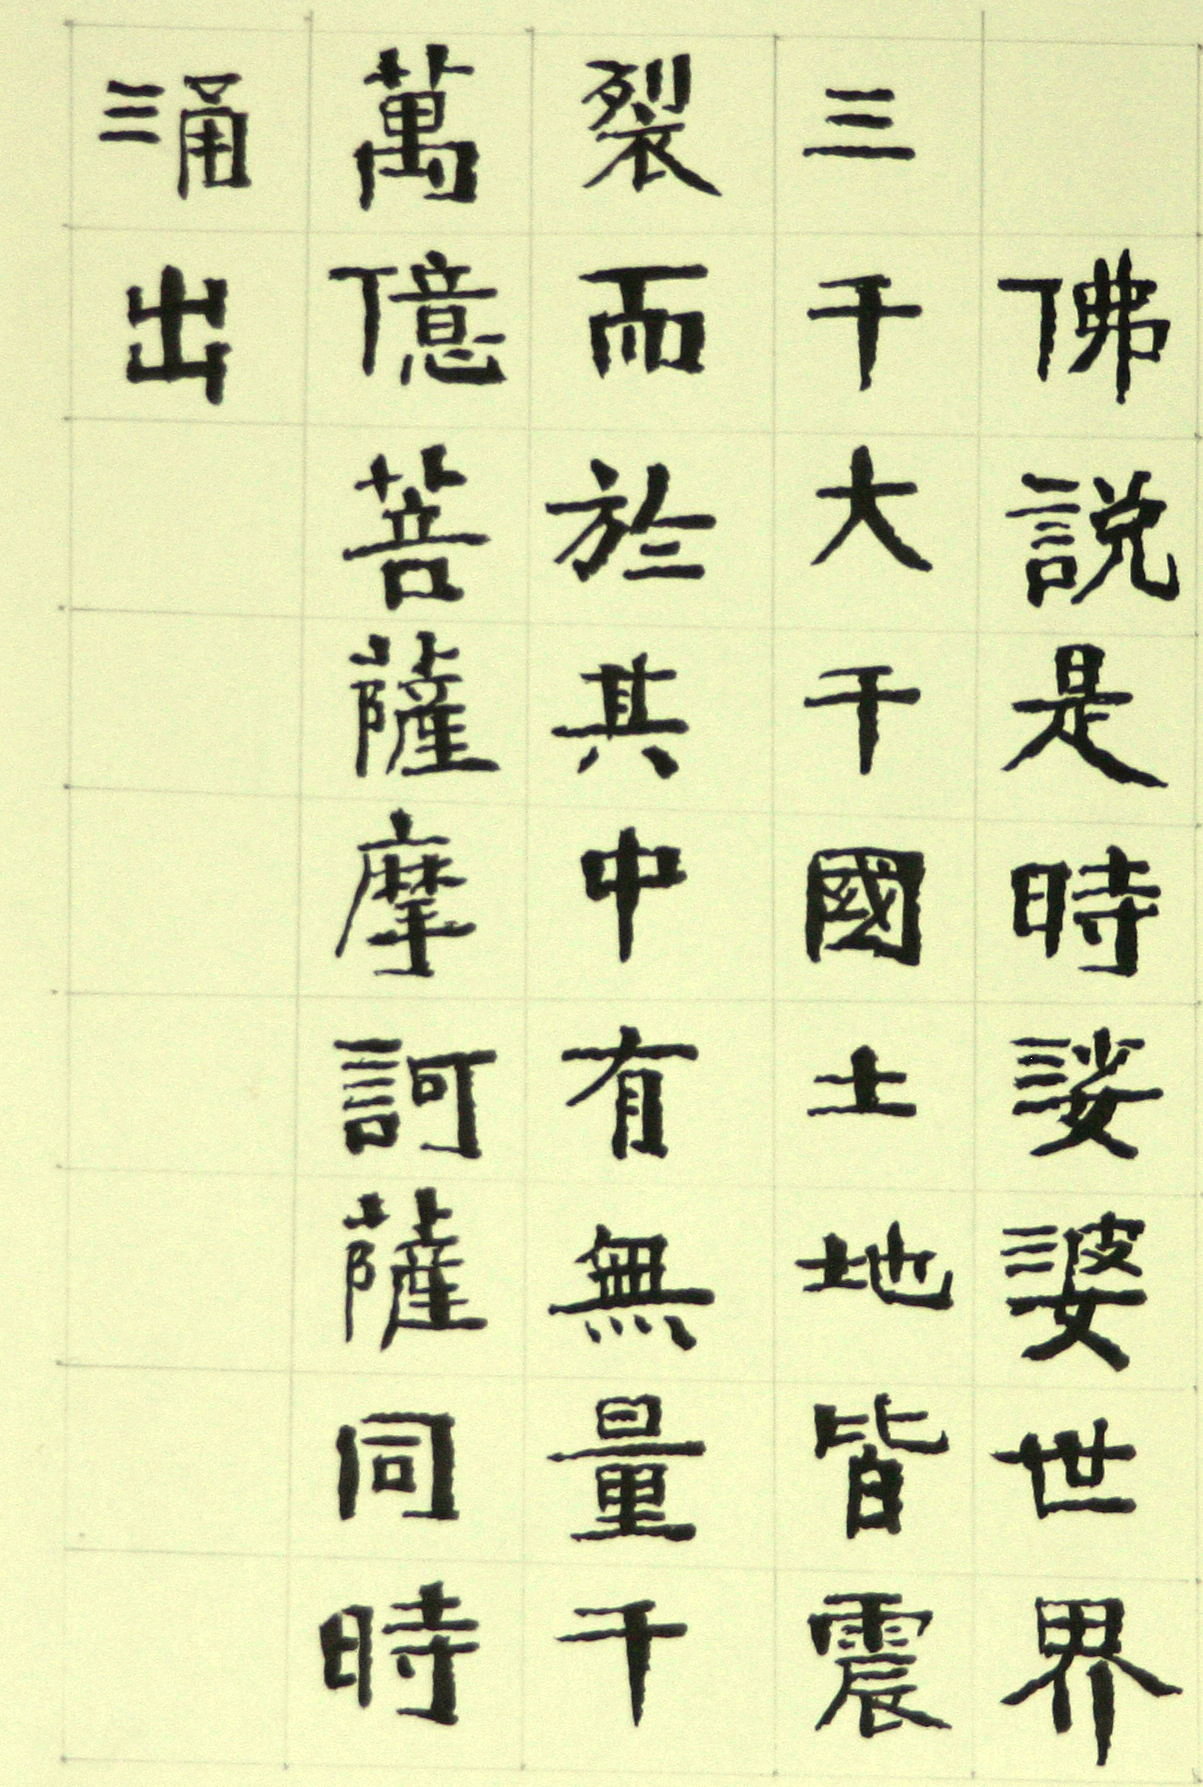 佛說是時娑婆世界
三千大千國土地皆震
裂而於其中有無量千
萬億菩薩摩訶薩同時
涌出